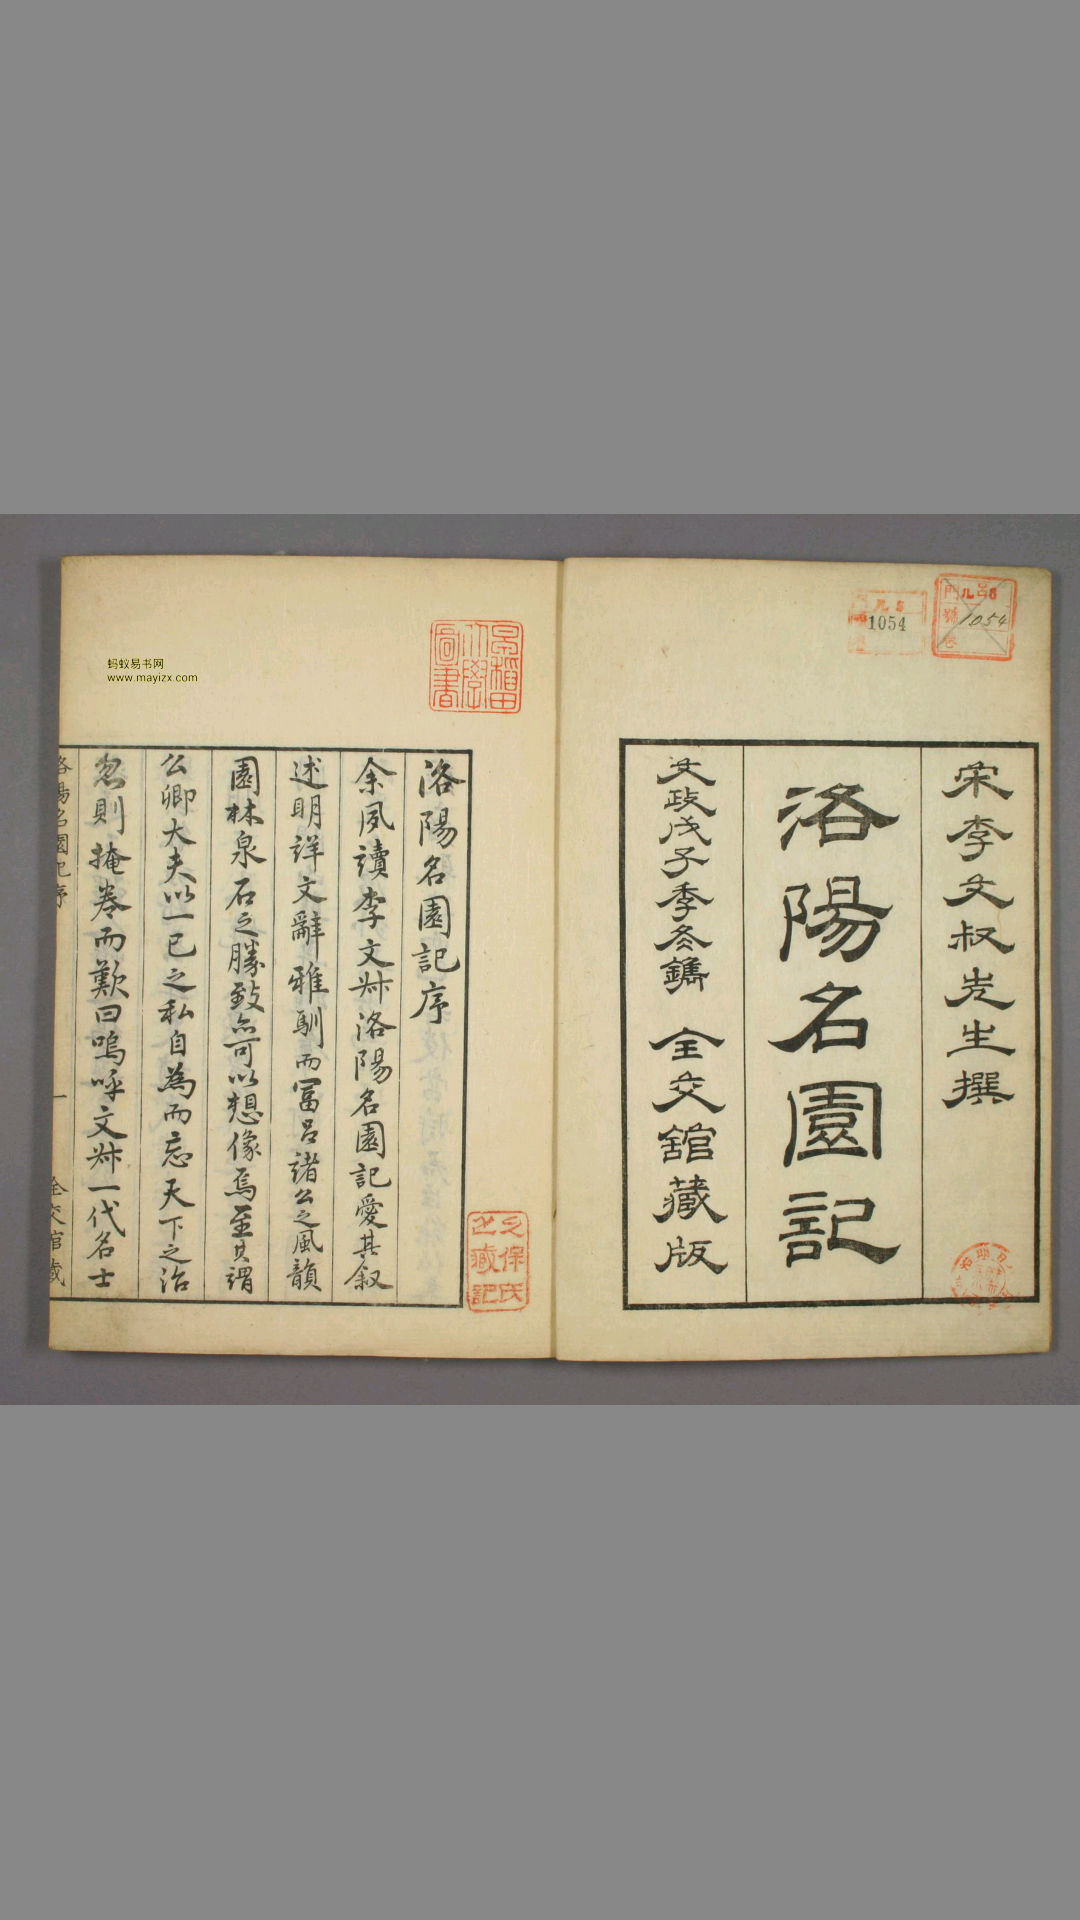 宋李文叔先生撰
洛陽名園記
文政戊子季冬鐫 全交館藏版
1054
1054
洛陽名園記序
余夙讀李文叔洛陽名園記愛其叙
述明詳文辭雅馴而冨呂諸公之風韻
園林泉石之勝致亦可以想像焉至其謂
公卿大夫以一己之私自為而忘天下之治
忽則掩卷而歎曰嗚呼文叔一代名士
洛陽名園記序 一 全交館藏
早稲田大學圖書
久保氏之藏記
蚂蚁易书网
www.mayizx.com